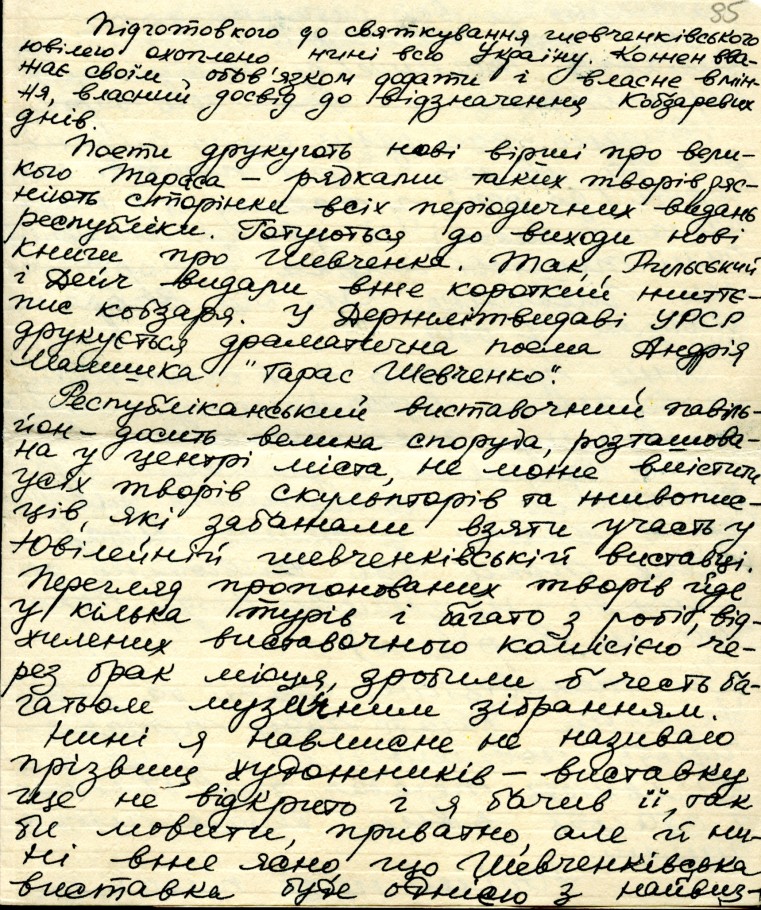 85
Підготовкою до святкування шевченківського
ювілею охоплено нині всю Україну. Кожен вва-
жає своїм обов'язком додати і власне вмін-
ня, власний досвід до відзначення Кобзаревих
днів.
Поети друкують нові вірші про вели-
кого Тараса – рядками таких творів ряс-
ніють сторінки всіх періодичних видань
республіки. Готуються до виходу нові
книги про Шевченка. Так, Рильський
і Дейч видали вже короткий життє-
пис кобзаря. У Держлітвидаві УРСР
друкується драматична поема Андрія
Малишка "Тарас Шевченко".
Республіканський виставочний павіль-
йон – досить велика споруда, розташова-
на у центрі міста, не може вмістити
усіх творів скульпторів та живопис-
ців, які забажали взяти участь у
Ювілейній шевченківській виставці.
Перегляд пропонованих творів йде
у кілька турів і багато з робіт, від-
хилених виставочного комісією че-
рез брак місця, зробили б честь ба-
гатьом музейним зібранням.
Нині я навмисне не називаю
прізвищ художників – виставку
ще не відкрито і я бачив її, так
би мовити, приватно, але й ни-
ні вже ясно, що Шевченківська
виставка буде однією з найвиз-